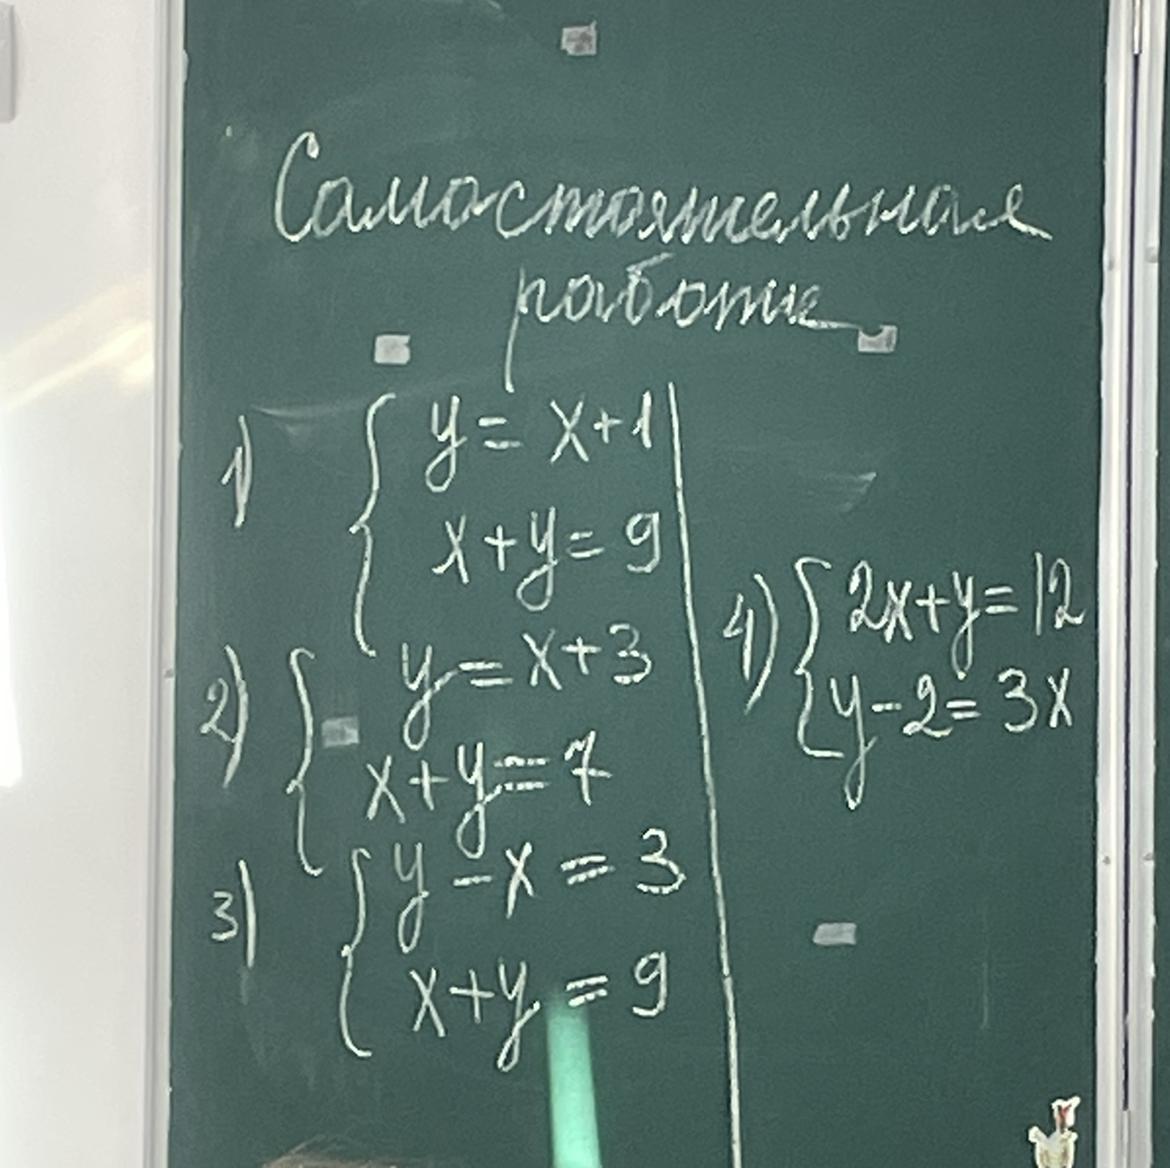 Самостоятельная
работа
1) { y = x+1
x+y = 9
2) { y = x+3
x+y = 7
3) { y - x = 3
x+y = 9
4) { 2x+y = 12
y - 2 = 3x